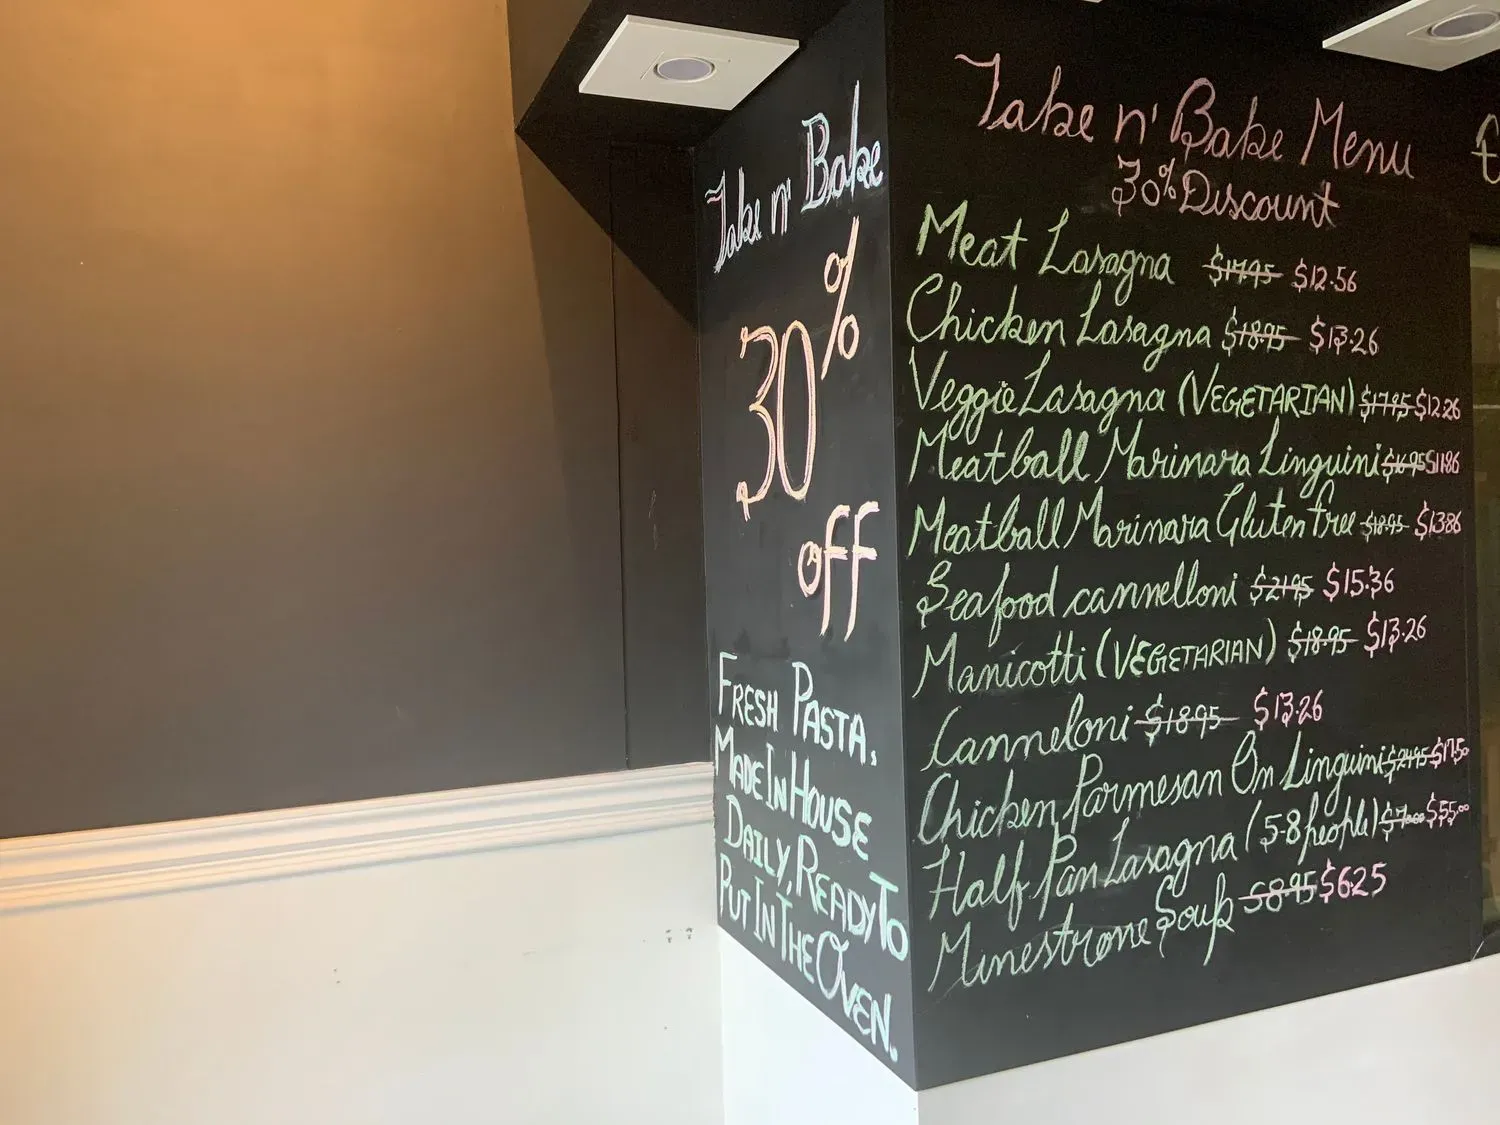 Take n' Bake
30%
off
FRESH PASTA.
MADE IN HOUSE
DAILY, READY TO
PUT IN THE OVEN.
Take n' Bake Menu
30% Discount
Meat Lasagna $17.95 $12.56
Chicken Lasagna $18.95 $13.26
Veggie Lasagna (VEGETARIAN) $17.95 $12.26
Meatball Marinara Linguini $16.95 $11.86
Meatball Marinara Gluten Free $18.95 $13.86
Seafood cannelloni $21.95 $15.36
Manicotti (VEGETARIAN) $18.95 $13.26
Canneloni $18.95 $13.26
Chicken Parmesan On Linguini $24.95 $17.50
Half Pan Lasagna (5-8 people) $55.00
Minestrone Soup $8.95 $6.25